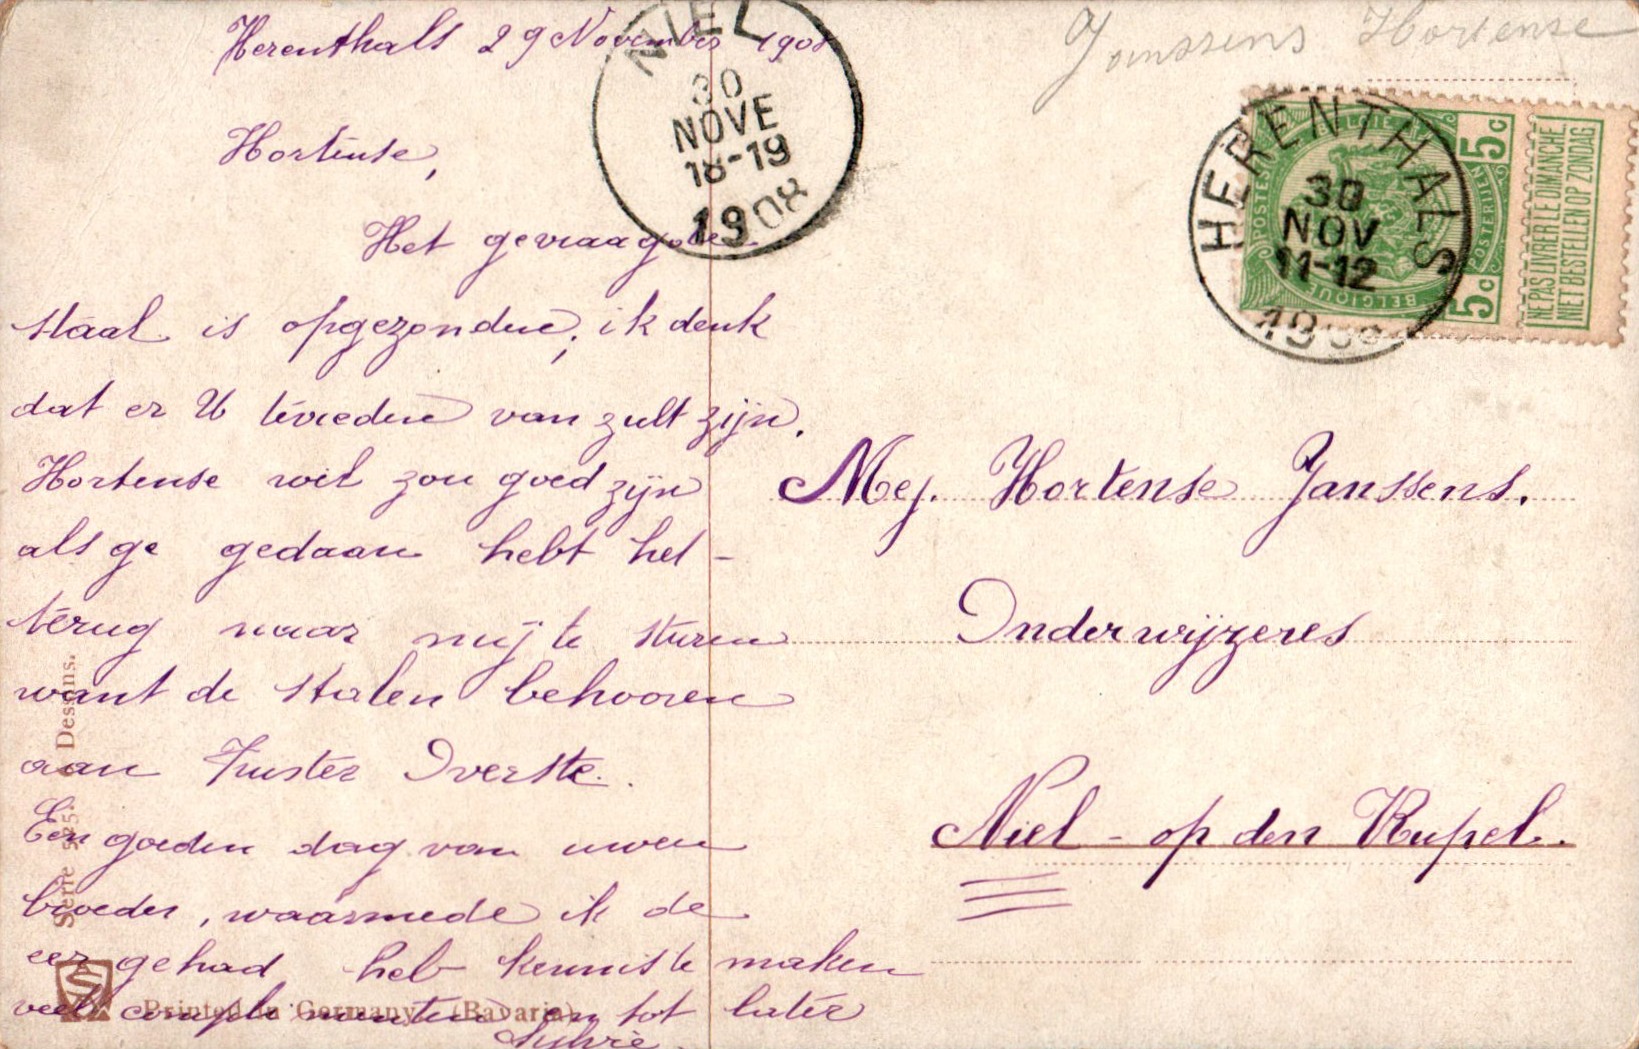 Janssens Hortense
Herenthals 29 November 1908
Hortense,
Het gevraagde
staal is opgezonden, ik denk
dat er U tevreden van zult zijn.
Hortense wil zou goed zijn
als ge gedaan hebt het-
terug naar mij te sturen
want de stalen behooren
aan Zuster Overste.
Een goeden dag van uwen
broeder, waarmede ik de
eer gehad heb kennis te maken
veel complimenten en tot later
Sylvie.
NIEL
30
NOVE
18-19
1908
HERENTHALS
30
NOV
11-12
BELGIQUE
5c
5c
POSTERIJEN
NE PAS LIVRER LE DIMANCHE
NIET BESTELLEN OP ZONDAG
Mej. Hortense Janssens.
Onderwijzeres
Niel - op den Rupel.
Dessins.
Serie
Printed in Germany (Bavaria)